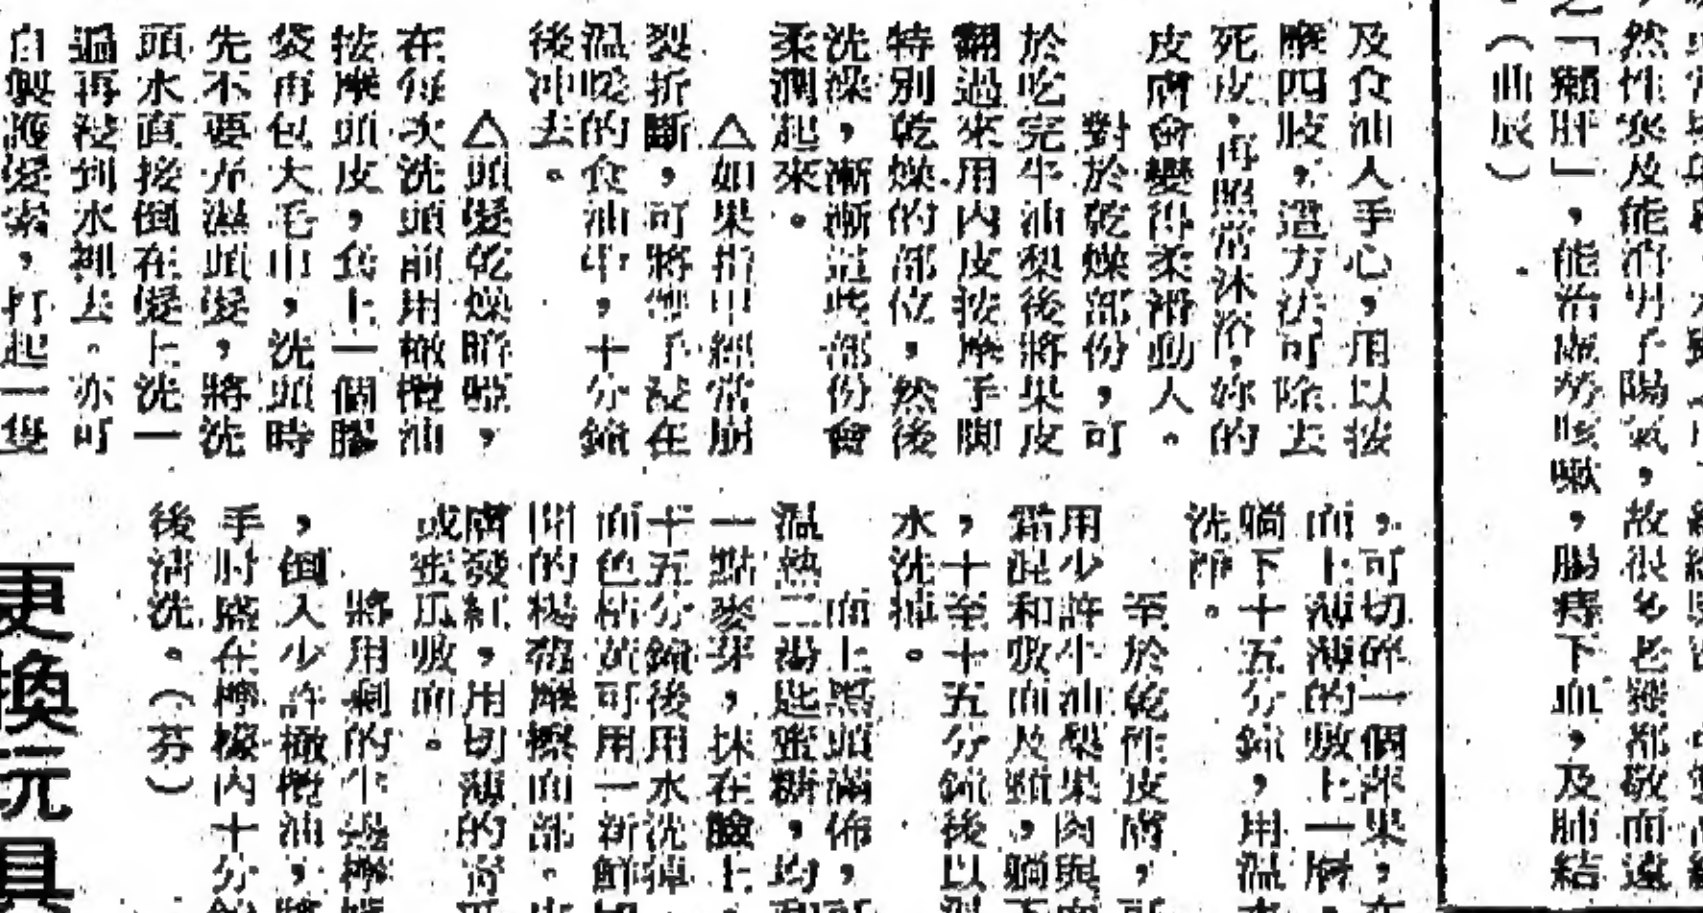 然性寒及能消男子陽氣，故很多老饕都敬而遠
之「獺肝」，能治虛勞咳嗽，腸痔下血，及肺結
（曲辰）
及食油人手心，用以按
摩四肢，這方法可除去
死皮，再照常沐浴，妳的
皮膚會變得柔滑動人。
對於乾燥部份，可
於吃完牛油梨後將果皮
翻過來用內皮按摩手脚
特別乾燥的部位，然後
洗澡，漸漸這些部份會
柔潤起來。
△如果指甲經常崩
裂折斷，可將雙手浸在
溫暖的食油中，十分鐘
後冲去。
△頭髮乾燥暗啞，
在每次洗頭前用橄欖油
按摩頭皮，套上一個膠
袋再包大毛巾，洗頭時
先不要弄濕頭髮，將洗
頭水直接倒在髮上洗一
過再浸到水裡去。亦可
自製護髮素，打起一隻
，可切碎一個苹果，在
面上薄薄的敷上一層，
躺下十五分鐘，用溫水
洗淨。
至於乾性皮膚，可
用少許牛油梨果肉與面
霜混和敷面及頸，躺下
，十至十五分鐘後以溫
水洗掉。
面上黑頭滿佈，可
溫熱二湯匙蜜糖，均
一點麥芽，抹在臉上
十五分鐘後用水洗掉
面色枯黃可用一新鮮切
開的楊莓摩擦面部。皮
膚發紅，用切薄的青瓜
或蜜瓜敷面。
將用剩的半邊檸檬
，倒入少許橄欖油，將
手肘盛在檸檬內十分鐘
後清洗。（芬）
更換玩具